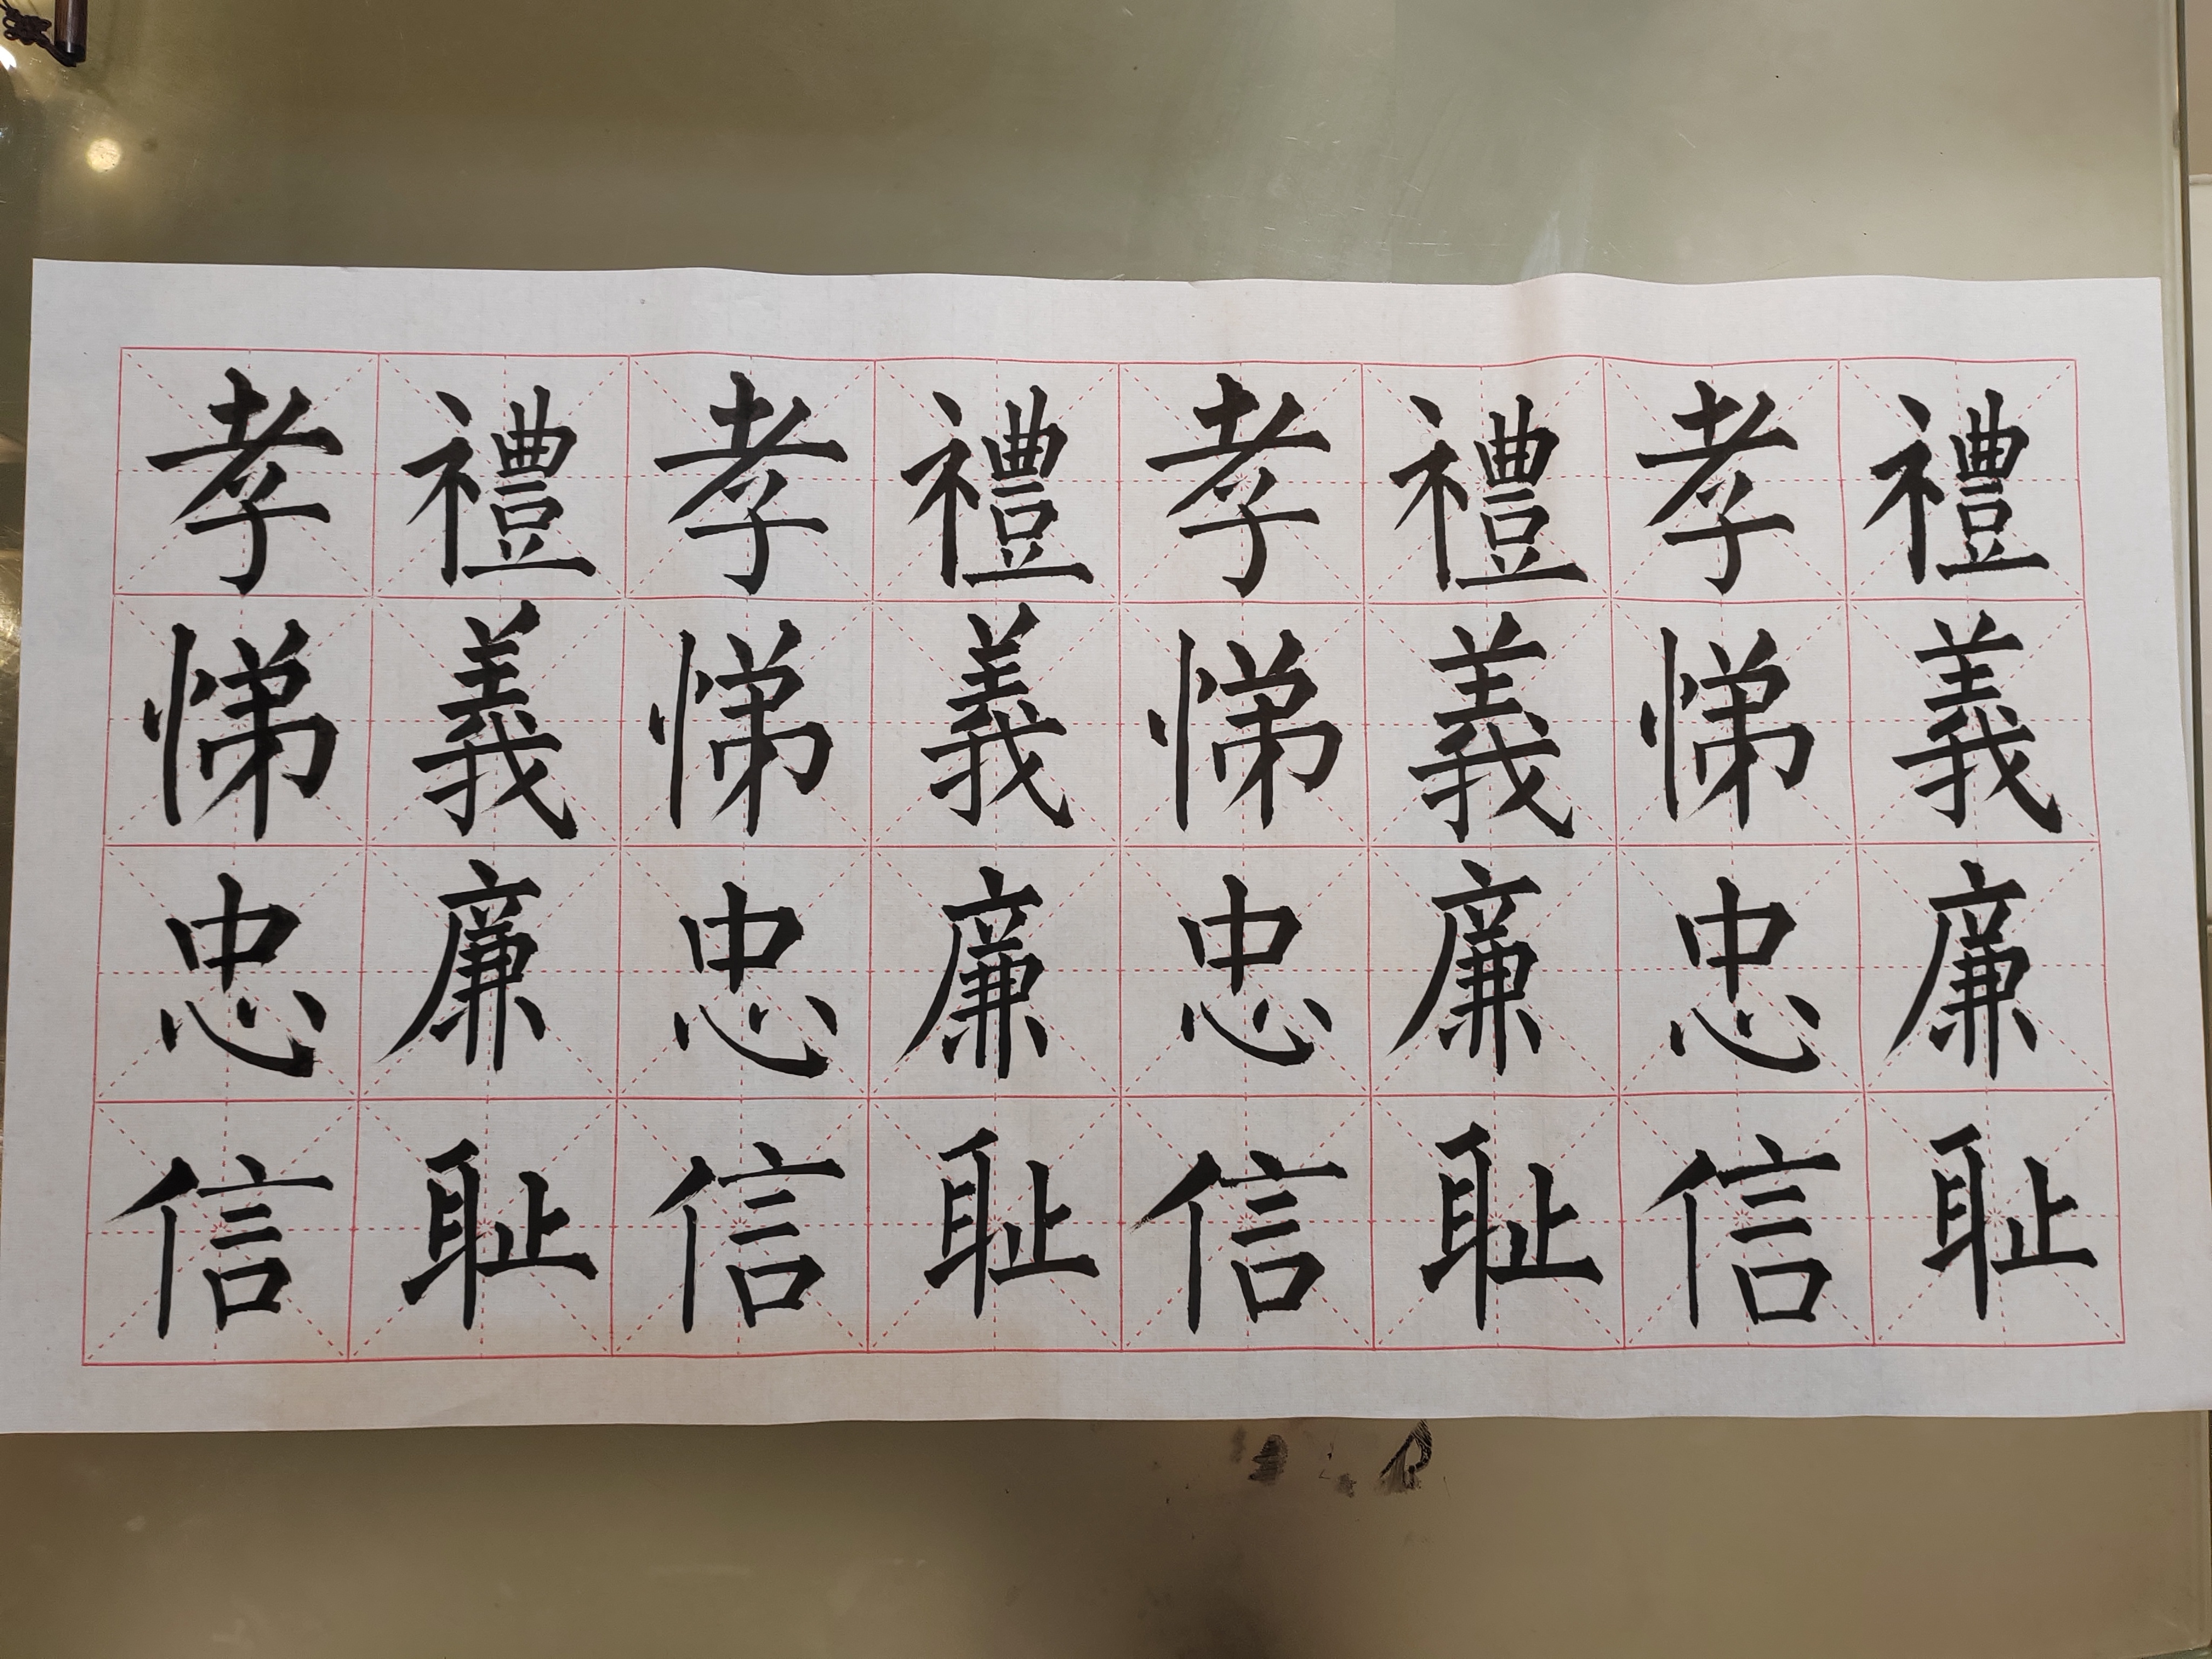 孝悌忠信
禮義廉耻
孝悌忠信
禮義廉耻
孝悌忠信
禮義廉耻
孝悌忠信
禮義廉耻